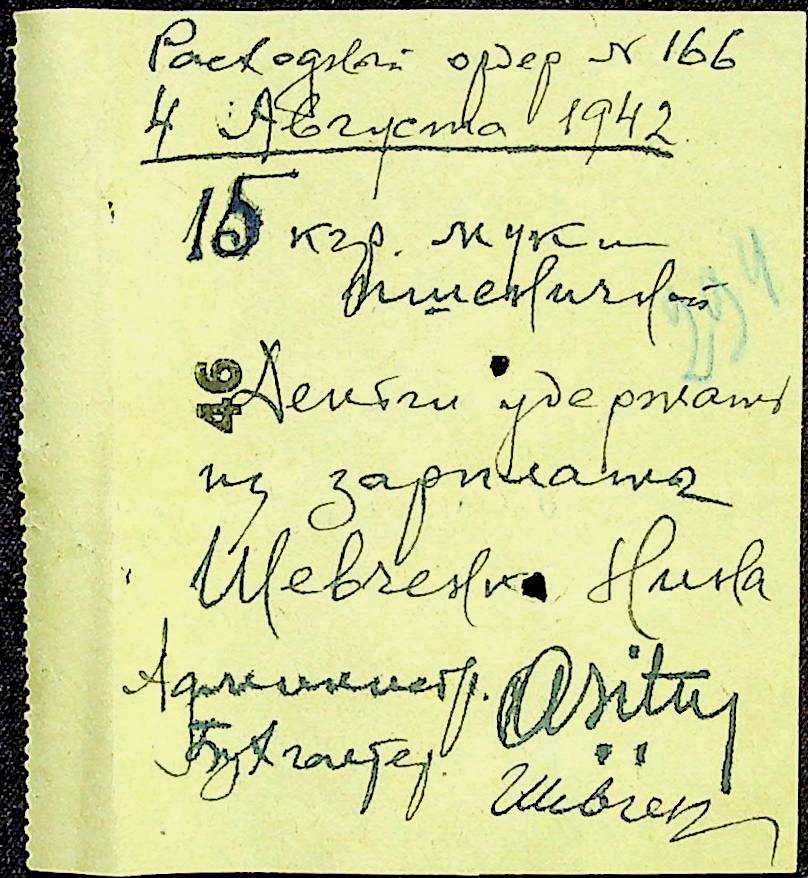 Расходный ордер № 166
4 Августа 1942
15 кгр. муки
пшеничной
234
46
Деньги удержаны
из зарплаты
Шевченко Нина
Администр.
Бухгалтер